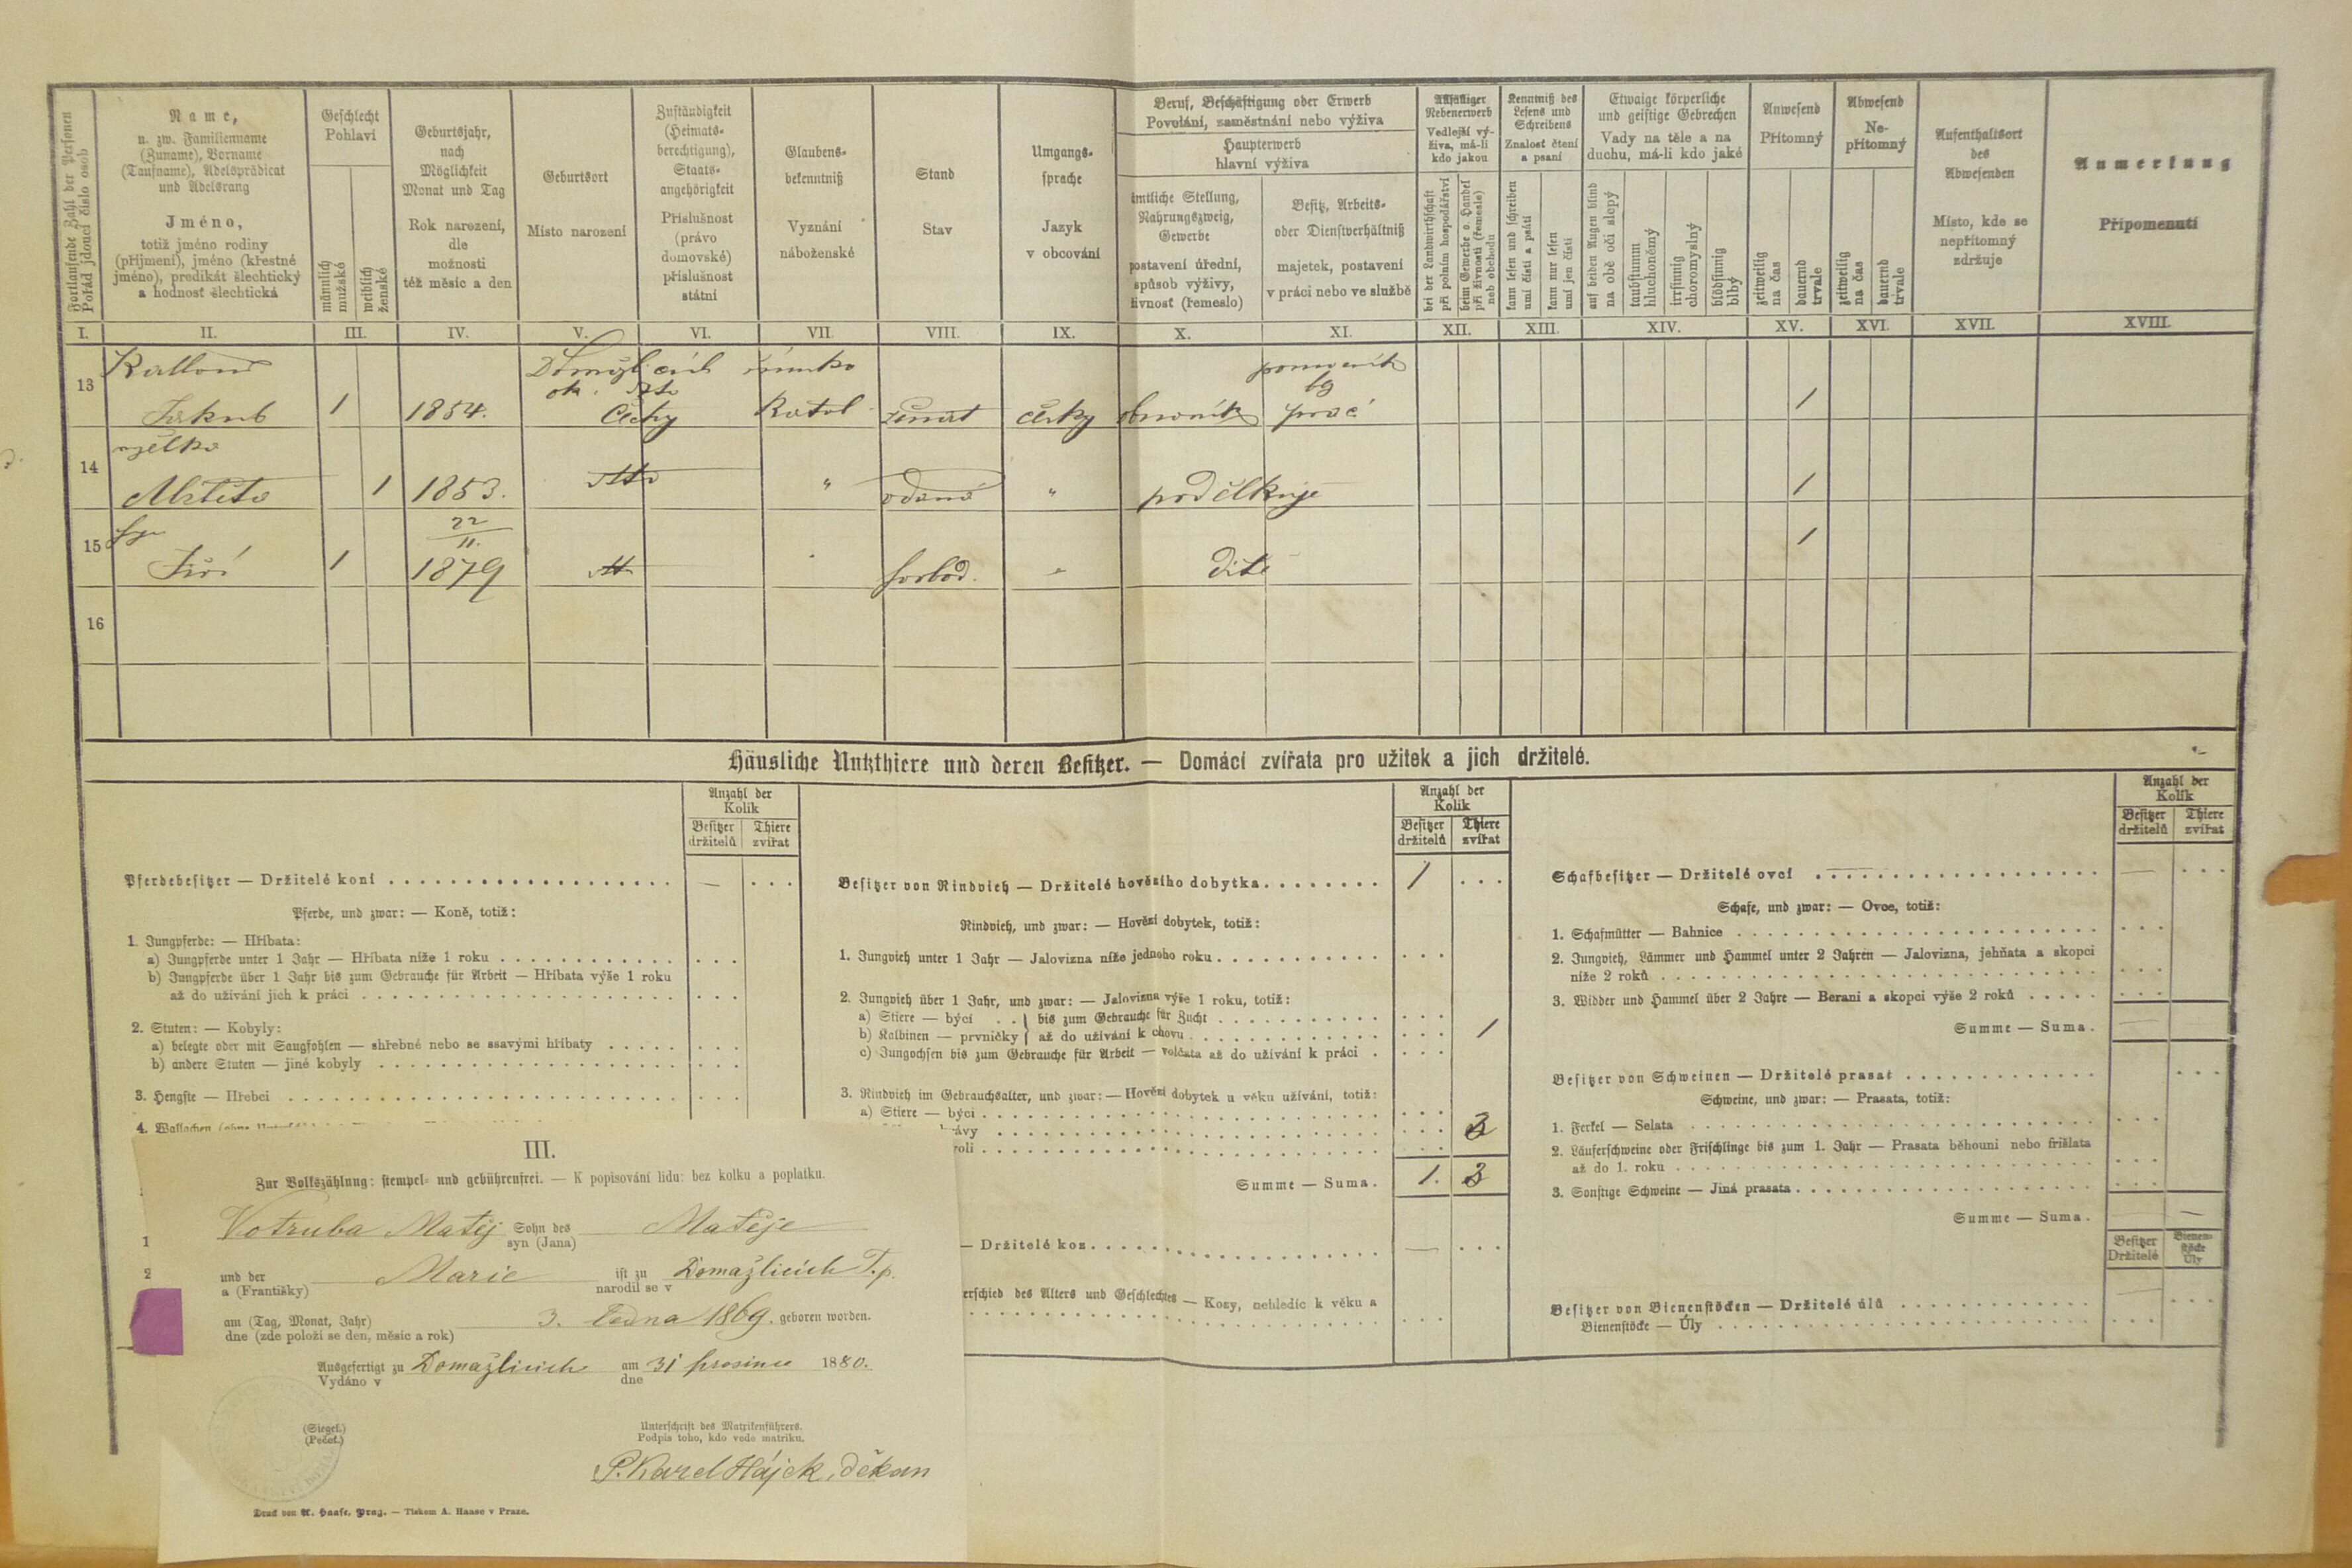 Fortlaufende Zahl der Personen
Pořád jdoucí číslo osob
Name,
u. zw. Familienname
(Zuname), Vorname
(Taufname), Adelsprädicat
und Adelsrang
Jméno,
totiž jméno rodiny
(příjmení), jméno (křestné
jméno), predikát šlechtický
a hodnosť šlechtická
Geschlecht
Pohlaví
männlich
mužské
weiblich
ženské
Geburtsjahr,
nach
Möglichkeit
Monat und Tag
Rok narození,
dle
možnosti
též měsíc a den
Geburtsort
Místo narození
Zuständigkeit
(Heimats-
berechtigung),
Staats-
angehörigkeit
Příslušnost
(právo
domovské)
příslušnost
státní
Glaubens-
bekenntniß
Vyznání
náboženské
Stand
Stav
Umgangs-
sprache
Jazyk
v obcování
Beruf, Beschäftigung oder Erwerb
Povolání, zaměstnání nebo výživa
Haupterwerb
hlavní výživa
ämtliche Stellung,
Nahrungszweig,
Gewerbe
postavení úřední,
spůsob výživy,
živnosť (řemeslo)
Besitz, Arbeits-
oder Dienstverhältniß
majetek, postavení
v práci nebo ve službě
Allfälliger
Nebenerwerb
Vedlejší vý-
živa, má-li
kdo jakou
bei der Landwirthschaft
při polním hospodářství
beim Gewerbe o. Handel
při živnosti (řemesle)
neb obchodu
Kenntniß des
Lesens und
Schreibens
Znalosť čtení
a psaní
kann lesen und schreiben
umí čísti a psáti
kann nur lesen
umí jen čísti
Etwaige körperliche
und geistige Gebrechen
Vady na těle a na
duchu, má-li kdo jaké
auf beiden Augen blind
na obě oči slepý
taubstumm
hluchoněmý
irrsinnig
choromyslný
blödsinnig
blbý
Anwesend
Přítomný
zeitweilig
na čas
dauernd
trvale
Abwesend
Ne-
přítomný
zeitweilig
na čas
dauernd
trvale
Aufenthaltsort
des
Abwesenden
Místo, kde se
nepřítomný
zdržuje
Anmerkung
Připomenutí
I. II. III. IV. V. VI. VII. VIII. IX. X. XI. XII. XIII. XIV. XV. XVI. XVII. XVIII.
13
Jakub 1 1854. Čechy Katol ženat česky práci 1
14
1 1853. " odaná " poděłkuje 1
15
22
11.
Jiří 1 1879 svobod. dítě 1
16
Häusliche Nutzthiere und deren Besitzer. — Domácí zvířata pro užitek a jich držitelé.
Anzahl der
Kolik
Besitzer Thiere
držitelů zvířat
Pferdebesitzer — Držitelé koní — . . .
Pferde, und zwar: — Koně, totiž:
1. Jungpferde: — Hříbata:
a) Jungpferde unter 1 Jahr — Hříbata níže 1 roku
b) Jungpferde über 1 Jahr bis zum Gebrauche für Arbeit — Hříbata výše 1 roku
až do užívání jich k práci
2. Stuten: — Kobyly:
a) belegte oder mit Saugfohlen — shřebné nebo se ssavými hříbaty
b) andere Stuten — jiné kobyly
3. Hengste — Hřebci
4. Wallachen
Anzahl der
Kolik
Besitzer Thiere
držitelů zvířat
Besitzer von Rindvieh — Držitelé hovězího dobytka 1 . . .
Rindvieh, und zwar: — Hovězí dobytek, totiž:
1. Jungvieh unter 1 Jahr — Jalovizna níže jednoho roku
2. Jungvieh über 1 Jahr, und zwar: — Jalovizna výše 1 roku, totiž:
a) Stiere — býci . . } bis zum Gebrauche für Zucht
b) Kalbinen — prvničky } až do užívání k chovu 1
c) Jungochsen bis zum Gebrauche für Arbeit — volčata až do užívání k práci
3. Rindvieh im Gebrauchsalter, und zwar: — Hovězí dobytek u věku užívání, totiž:
a) Stiere — býci
rávy
voli
Summe — Suma. 1. 3
— Držitelé koz —
erschied des Alters und Geschlechtes — Kozy, nehledíc k věku a
Anzahl der
Kolik
Besitzer Thiere
držitelů zvířat
Schafbesitzer — Držitelé ovcí
Schafe, und zwar: — Ovce, totiž:
1. Schafmütter — Bahnice
2. Jungvieh, Lämmer und Hammel unter 2 Jahren — Jalovizna, jehňata a skopci
níže 2 roků
3. Widder und Hammel über 2 Jahre — Berani a skopci výše 2 roků
Summe — Suma.
Besitzer von Schweinen — Držitelé prasat
Schweine, und zwar: — Prasata, totiž:
1. Ferkel — Selata
2. Läuferschweine oder Frischlinge bis zum 1. Jahr — Prasata běhouni nebo frišlata
až do 1. roku
3. Sonstige Schweine — Jiná prasata
Summe — Suma. —
Besitzer Bienen-
Držitelé stöcke
Úly
Besitzer von Bienenstöcken — Držitelé úlů
Bienenstöcke — Úly
III.
Zur Volkszählung: stempel- und gebührenfrei. — K popisování lidu: bez kolku a poplatku.
Votruba Matěj Sohn des Matěje
syn (Jana)
und der Marie ist zu Domažlicích T.p.
a (Františky) narodil se v
am (Tag, Monat, Jahr) 3. ledna 1869. geboren worden.
dne (zde položí se den, měsíc a rok)
Ausgefertigt zu Domažlicích am 31 prosince 1880.
Vydáno v dne
(Siegel.)
(Pečeť.)
Unterschrift des Matrikenführers.
Podpis toho, kdo vede matriku.
P. Karel Hájek, děkan
Druck von A. Haase, Prag. — Tiskem A. Haase v Praze.